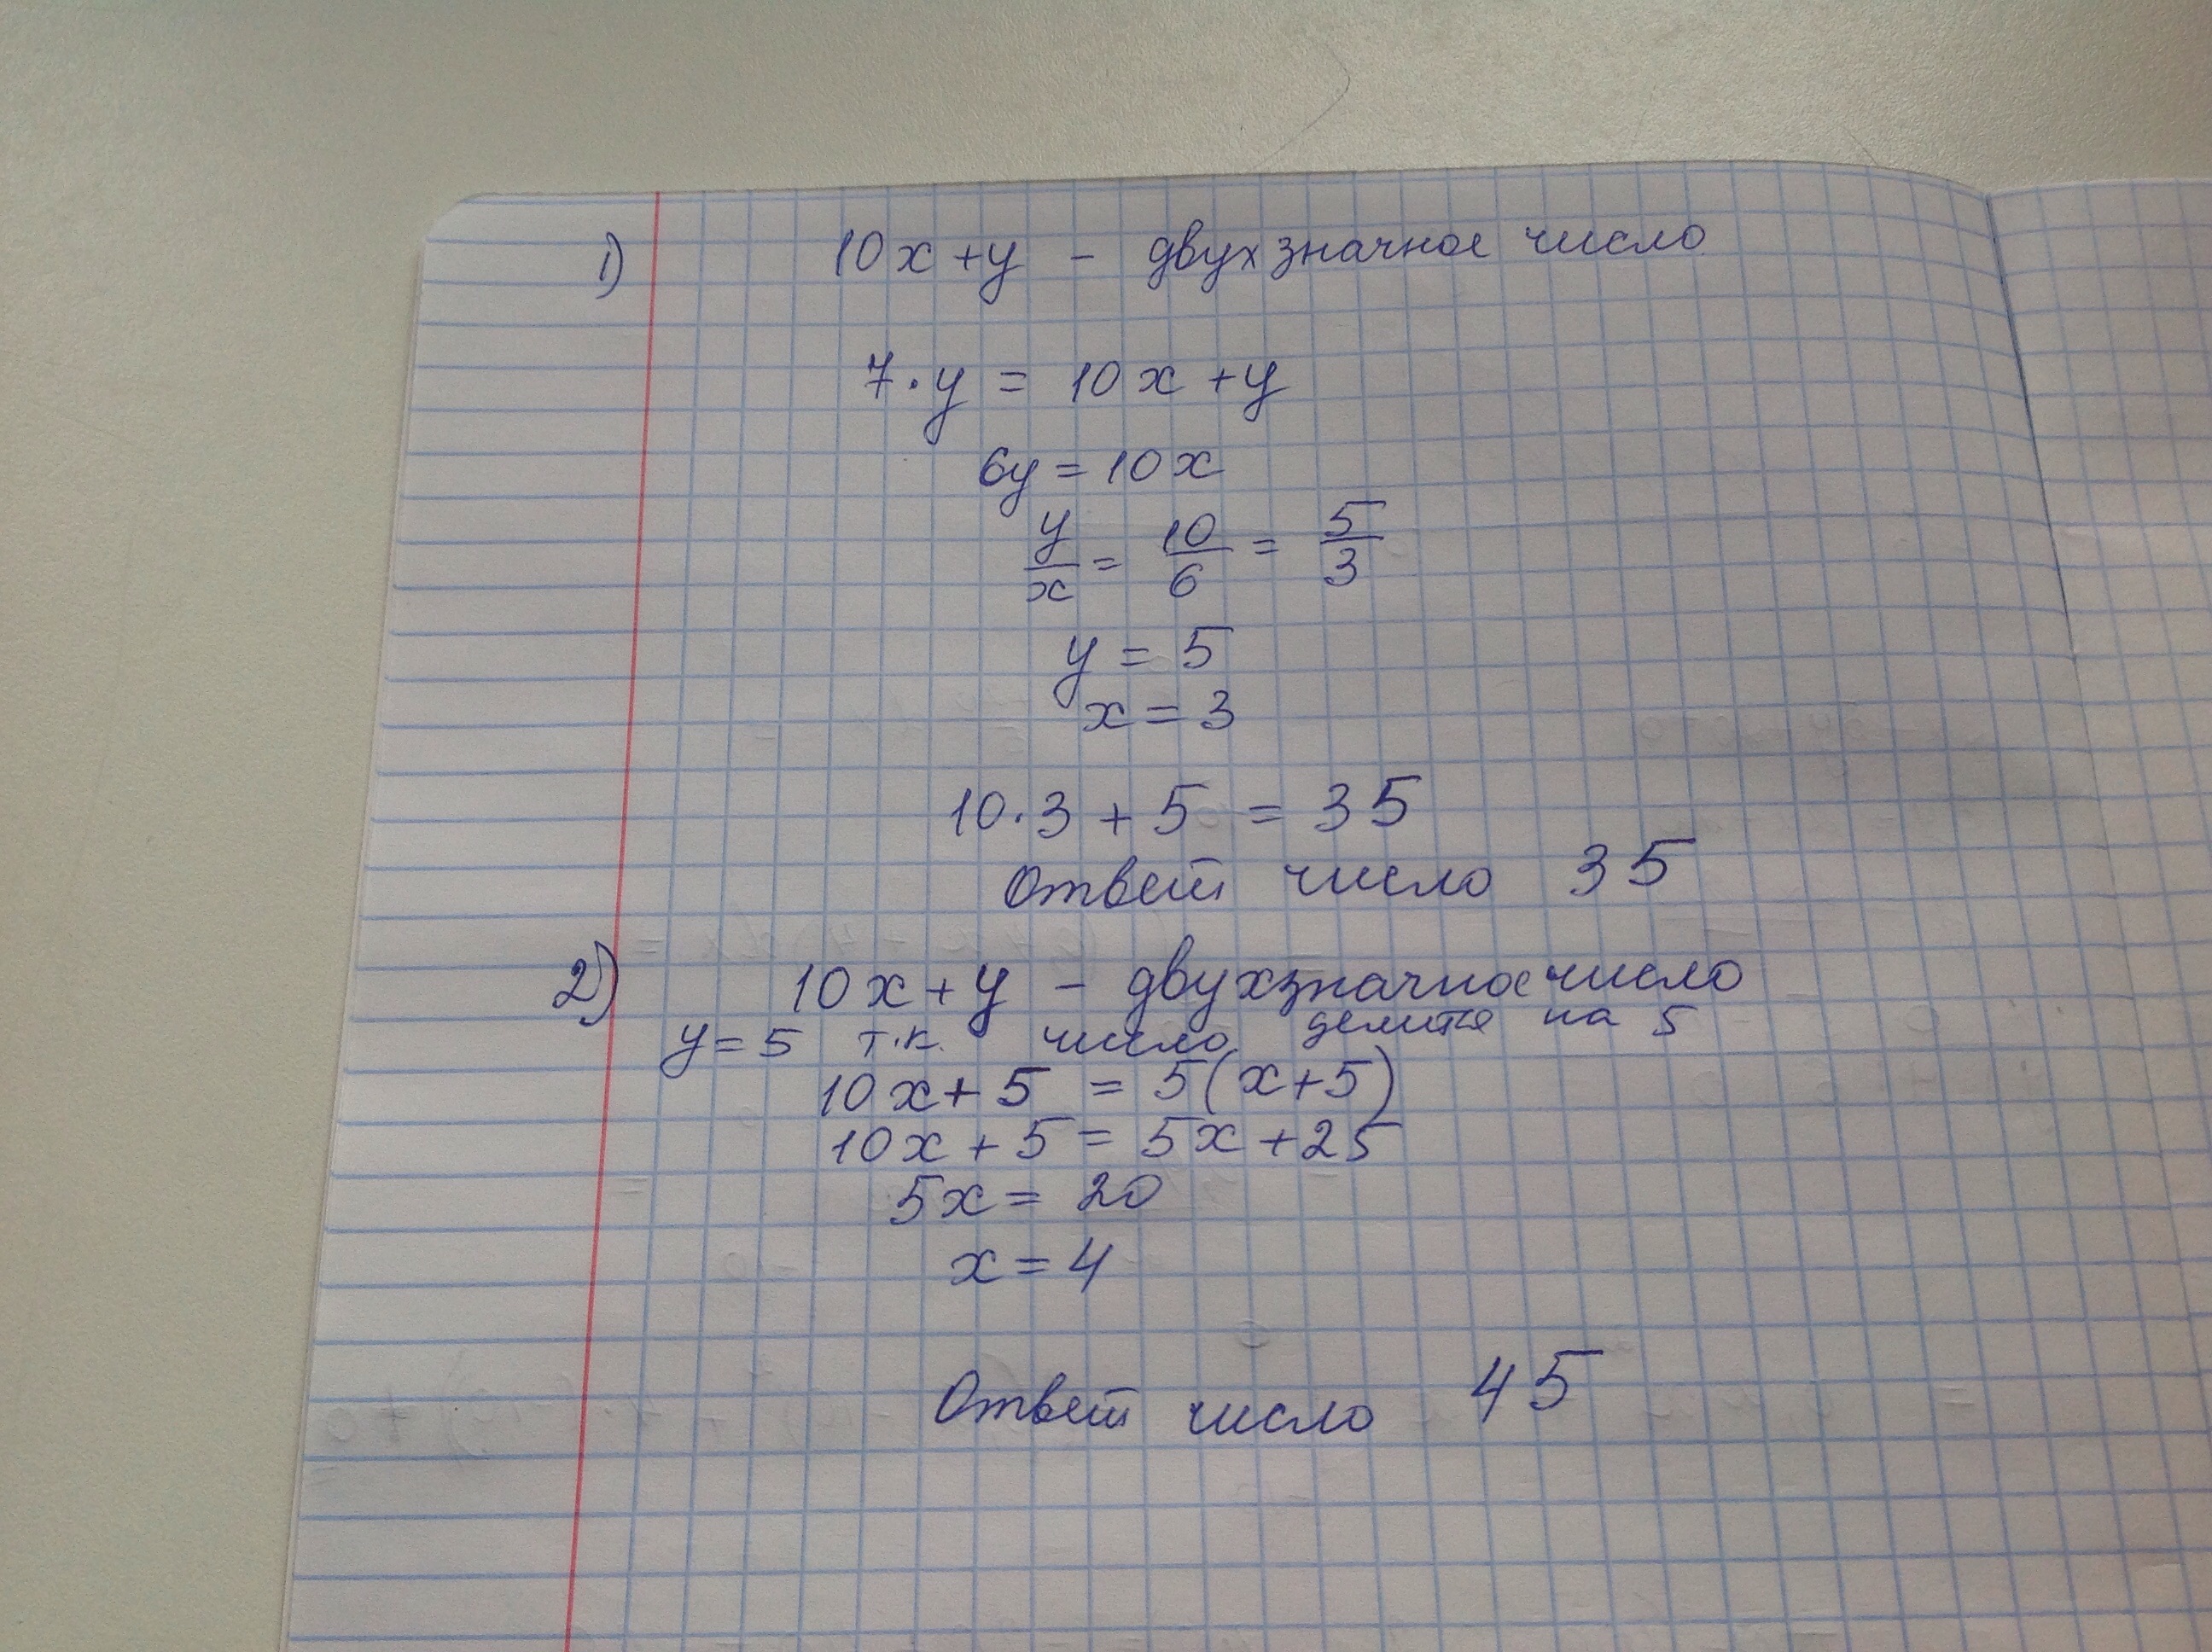 1) 10x+y - двухзначное число
7·y = 10x+y
6y=10x
y/x = 10/6 = 5/3
y = 5
x = 3
10·3 + 5 = 35
Ответ число 35
2) 10x+y - двухзначное число
y=5 т.к. число делится на 5
10x+5 = 5(x+5)
10x+5=5x+25
5x= 20
x=4
Ответ число 45